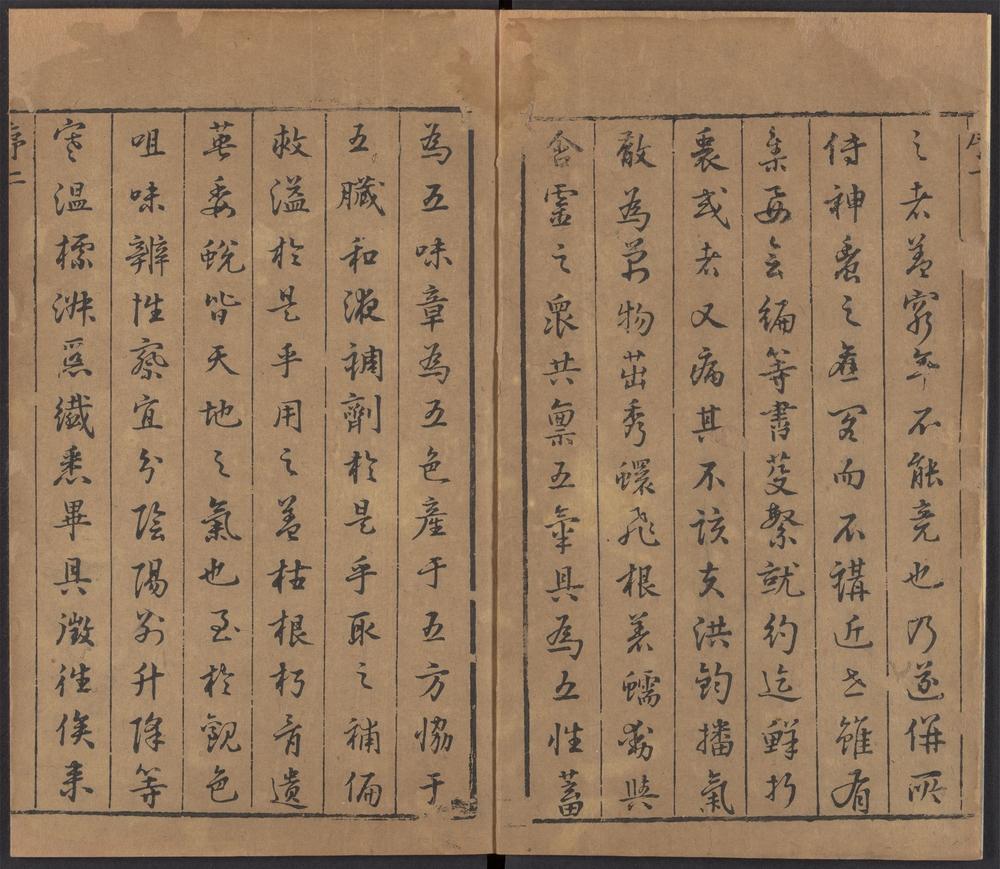 序一
之者蓋窮年不能竟也乃遂併所
傳神農之舊置而不講近世雖有
集要會編等書芟繁就約迄鮮折
衷或者又病其不該夫洪鈞播氣
散為萬物茁秀蠉飛根荄蠕動與
含靈之眾共稟五氣具為五性蓄
為五味章為五色產于五方協于
五臟和液調劑於是乎取之補偏
救溢於是乎用之蓋枯根朽骨遺
英委蛻皆天地之氣也至於觀色
咀味辨性察宜分陰陽別升降等
寒溫標淑慝纖悉畢具徵往俟來
序二